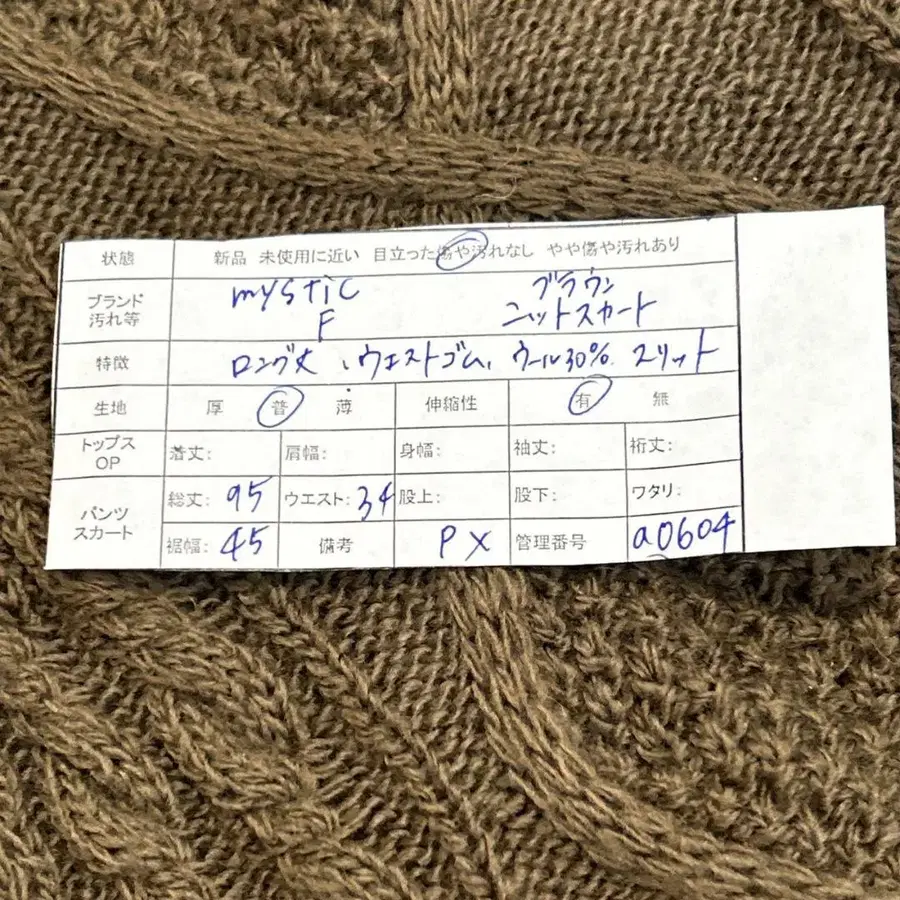 状態 新品 未使用に近い 目立った傷や汚れなし やや傷や汚れあり
ブランド mystic ブラウン
汚れ等 F ニットスカート
特徴 ロング丈、ウエストゴム、ウール30%. スリット
生地 厚 普 薄 伸縮性 有 無
トップス OP 着丈: 肩幅: 身幅: 袖丈: 裄丈:
パンツ スカート 総丈: 95 ウエスト: 34 股上: 股下: ワタリ:
裾幅: 45 備考 PX 管理番号 a0604